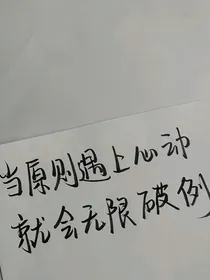 当原则遇上心动
就会无限破例